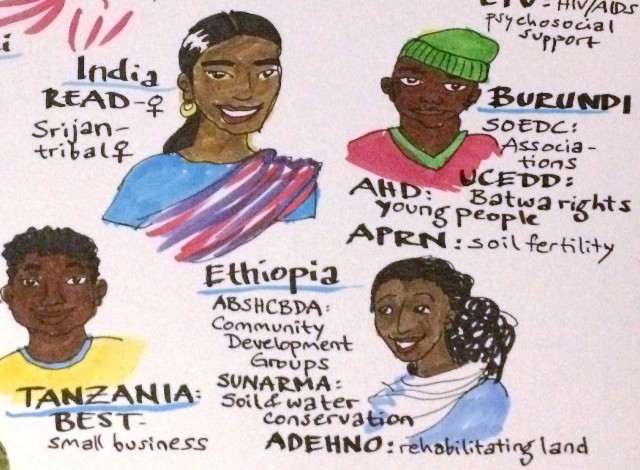 ETV: HIV/AIDS
psychosocial
support
i
India
READ-♀
Srijan-
tribal♀
BURUNDI
SOEDC:
Associa-
tions
UCEDD:
Batwa rights
AHD:
young people
APRN: soil fertility
Ethiopia
ABSHCBDA:
Community
Development
Groups
SUNARMA:
Soil & water
conservation
ADEHNO: rehabilitating land
TANZANIA:
BEST-
small business